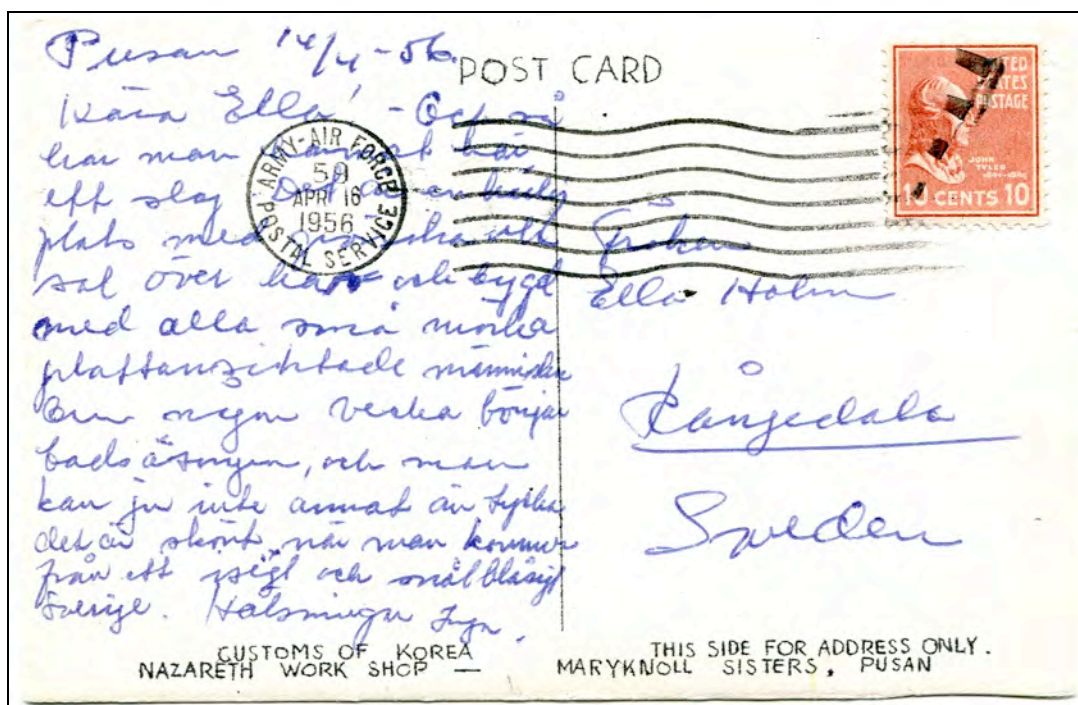 Pusan 14/4-56.
POST CARD
Kära Ella! - Och så
har man hamnat här
ett slag. Det är en
plats med alltid
sol över hav och bygd
med alla små mörka
plattansiktade människor
Om någon vecka börjar
badsäsongen, och man
kan ju inte annat än tycka
det är skönt när man kommer
från ett isigt och snålblåsigt
Sverige. Hälsningar Inga.
ARMY-AIR FORCE
POSTAL SERVICE
59
APR 16
1956
UNITED
STATES
POSTAGE
JOHN
TYLER
1841-1845
10 CENTS 10
Fröken
Ella Holm
Rångedala
Sweden
CUSTOMS OF KOREA
NAZARETH WORK SHOP —
THIS SIDE FOR ADDRESS ONLY.
MARYKNOLL SISTERS, PUSAN